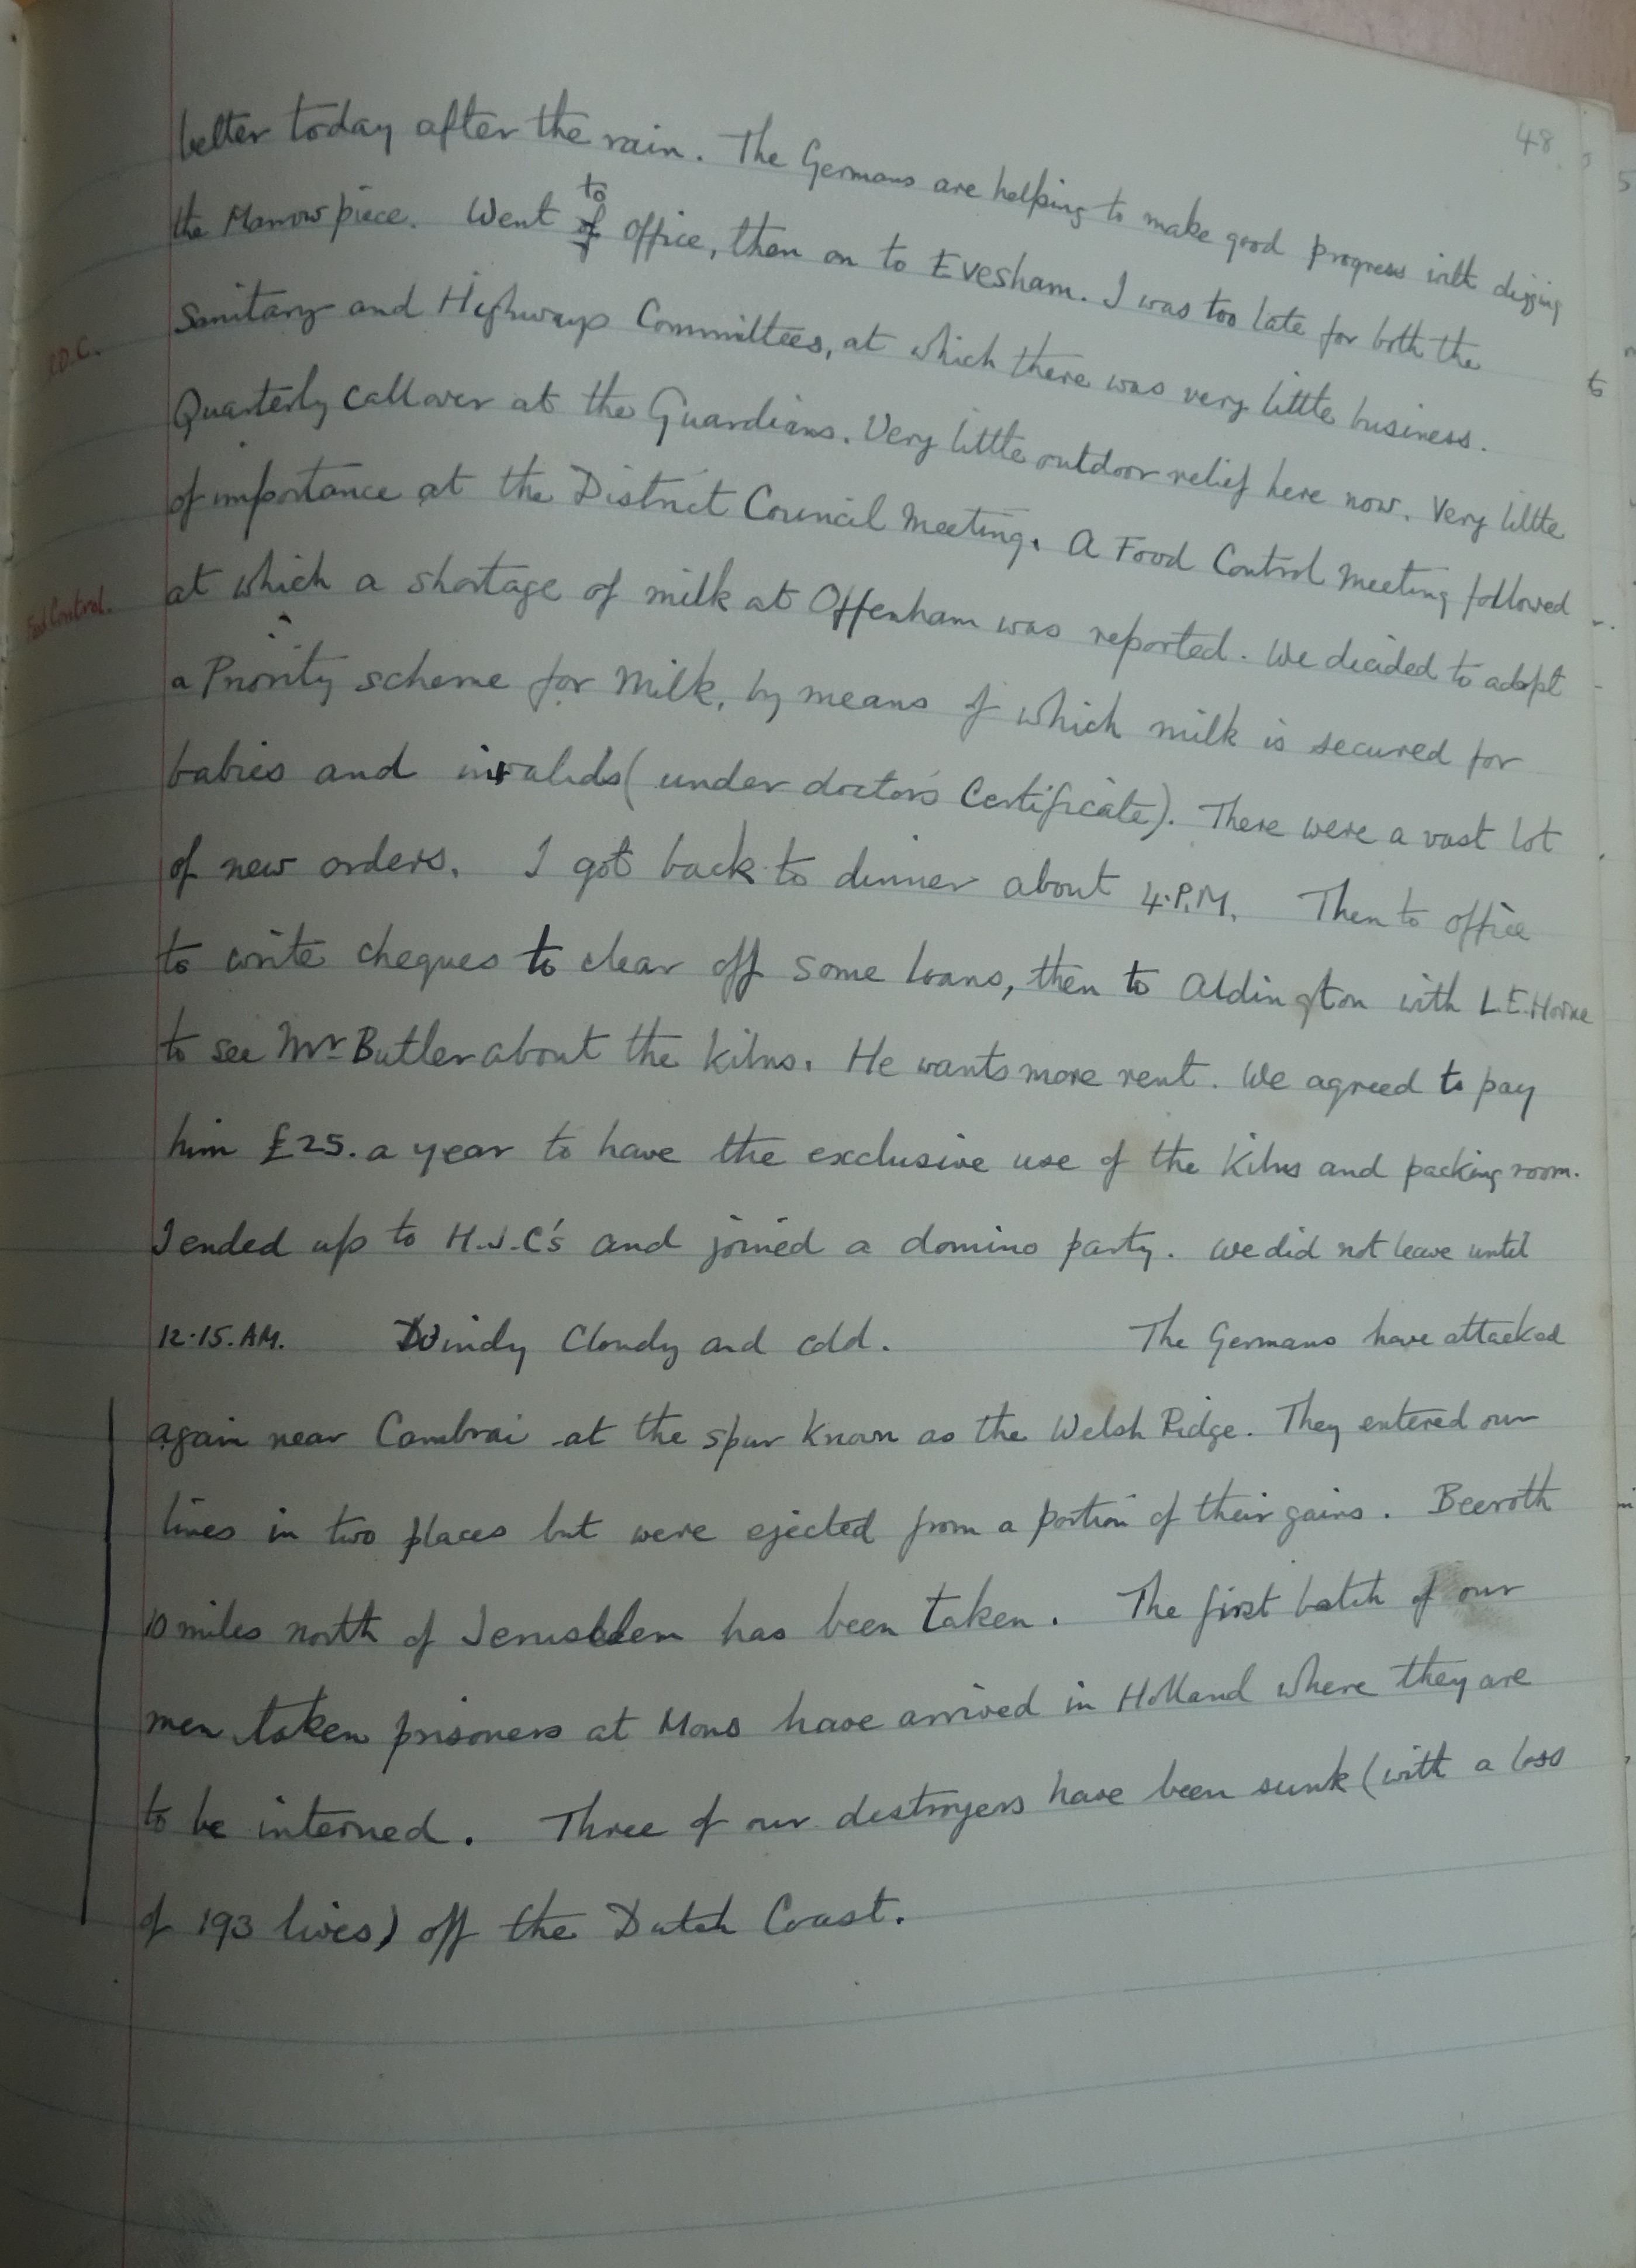 48
better today after the rain. The Germans are helping to make good progress with digging
the Marrow piece. Went to of office, then on to Evesham. I was too late for both the
R.D.C.
Sanitary and Highways Committees, at which there was very little business.
Quarterly call over at the Guardians. Very little outdoor relief here now. Very little
of importance at the District Council Meeting. A Food Control Meeting followed
Food Control.
at which a shortage of milk at Offenham was reported. We decided to adopt
a Priority scheme for Milk, by means of which milk is secured for
babies and invalids (under doctor's Certificate). There were a vast lot
of new orders. I got back to dinner about 4.P.M. Then to office
to write cheques to clear off some loans, then to Aldington with L.E.Horne
to see Mr Butler about the Kilns. He wants more rent. We agreed to pay
him £25. a year to have the exclusive use of the Kilns and packing room.
I ended up to H.J.C's and joined a domino party. We did not leave until
12.15.AM. Windy Cloudy and cold. The Germans have attacked
again near Cambrai at the spur known as the Welsh Ridge. They entered our
lines in two places but were ejected from a portion of their gains. Beeroth
10 miles north of Jerusalem has been taken. The first batch of our
men taken prisoners at Mons have arrived in Holland where they are
to be interned. Three of our destroyers have been sunk (with a loss
of 193 lives) off the Dutch Coast.